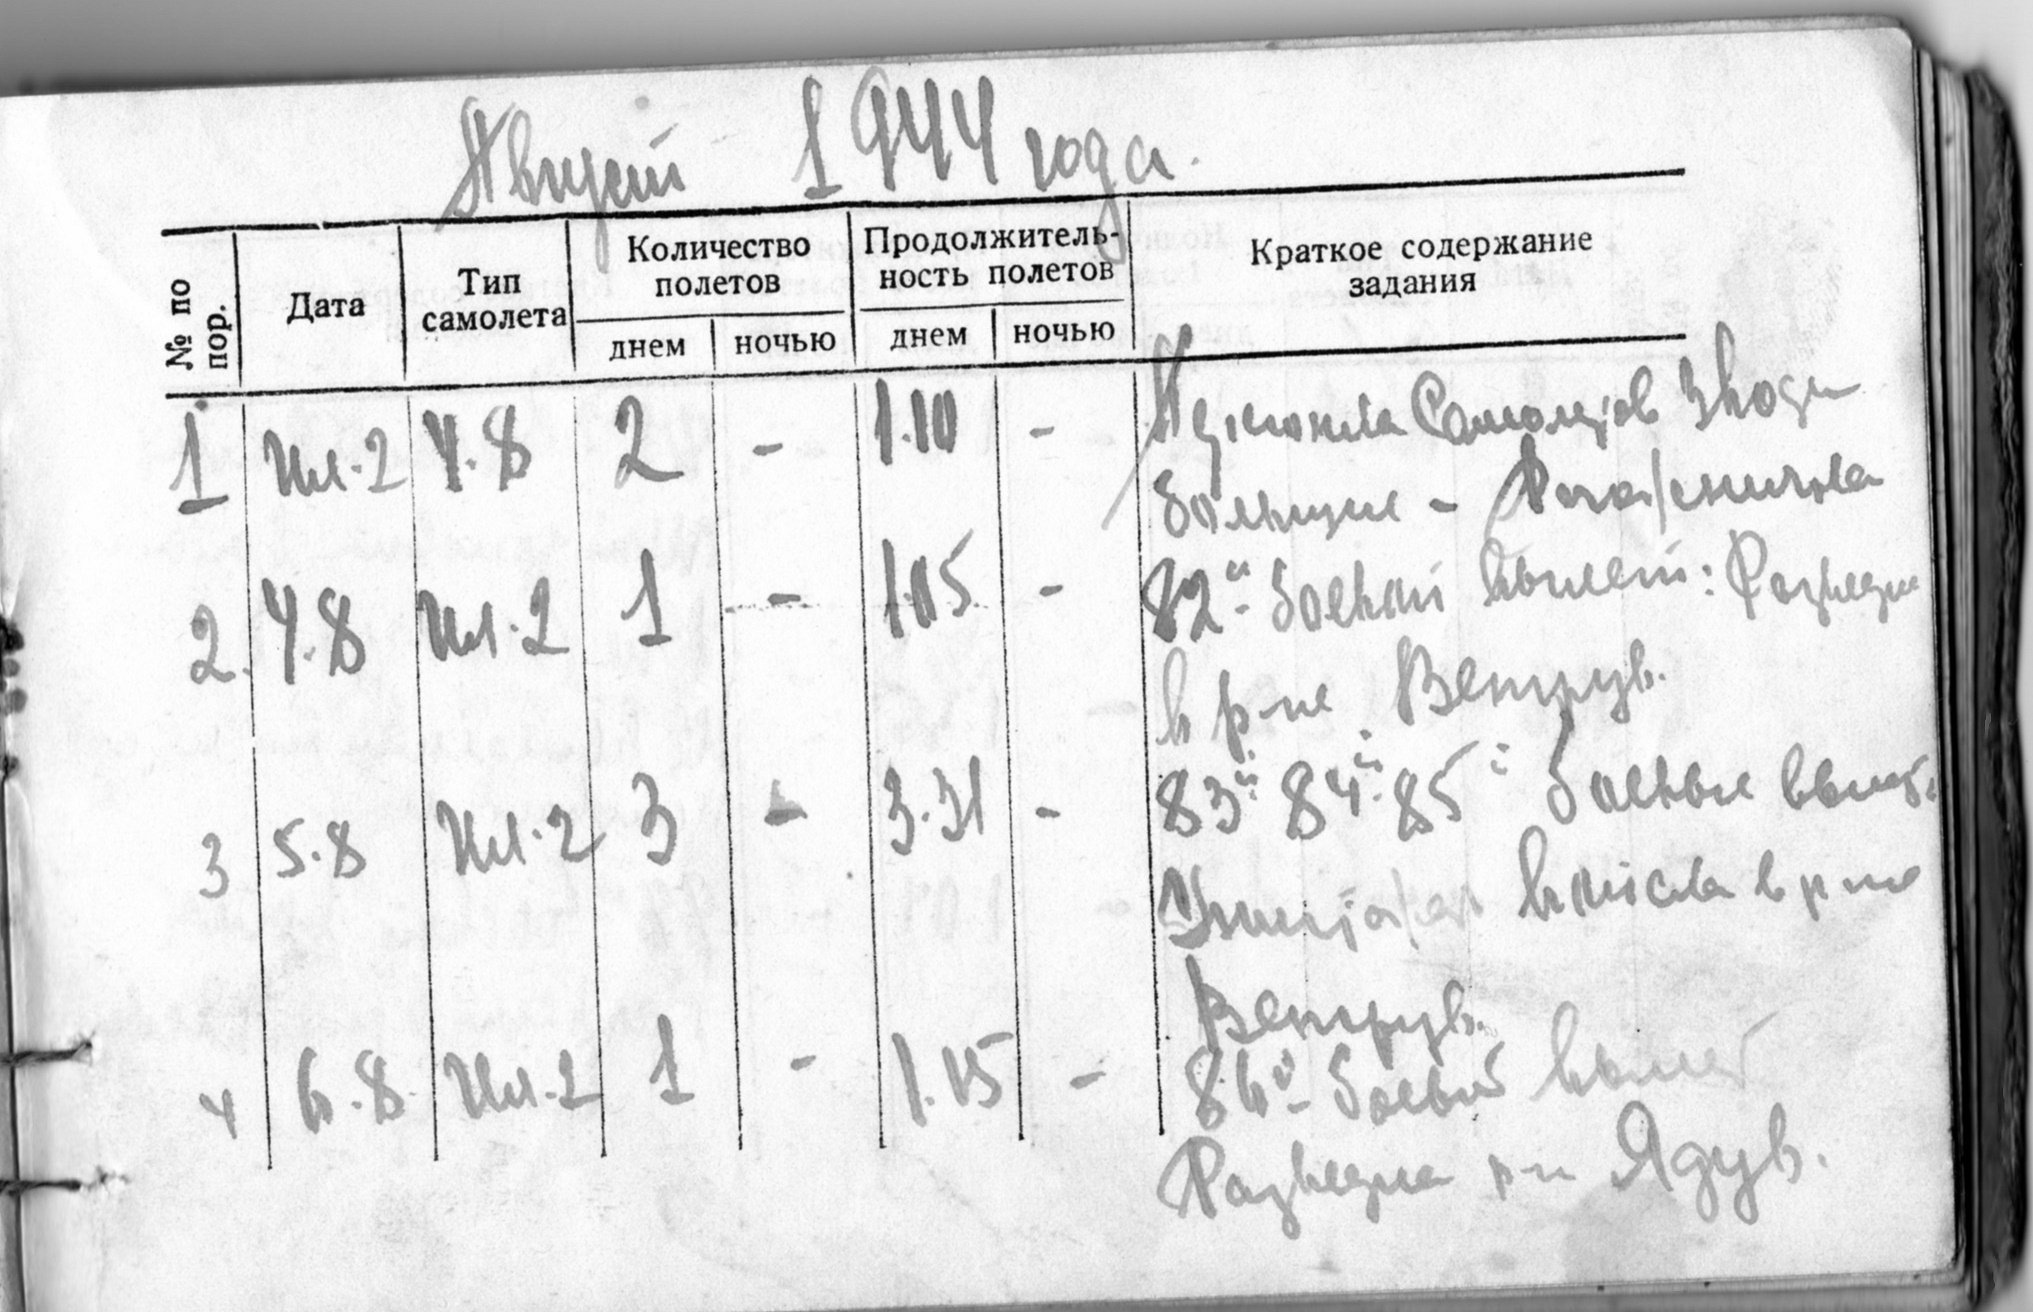 Август 1944 года.
№ по пор. Дата Тип самолета Количество полетов Продолжитель-ность полетов Краткое содержание задания
днем ночью днем ночью
1 Ил-2 4.8 2 - 1.10 - самолетов
-
2. 4.8 Ил-2 1 - 1.15 - 82й боевой вылет: Разведка
в р-не Венгрув.
3 5.8 Ил-2 3 - 3.31 - 83й 84й 85й боевые вылет.
в р-не
Венгрув.
4 6.8 Ил-2 1 - 1.15 - 86й - боевой вылет
Разведка р-н Ядув.